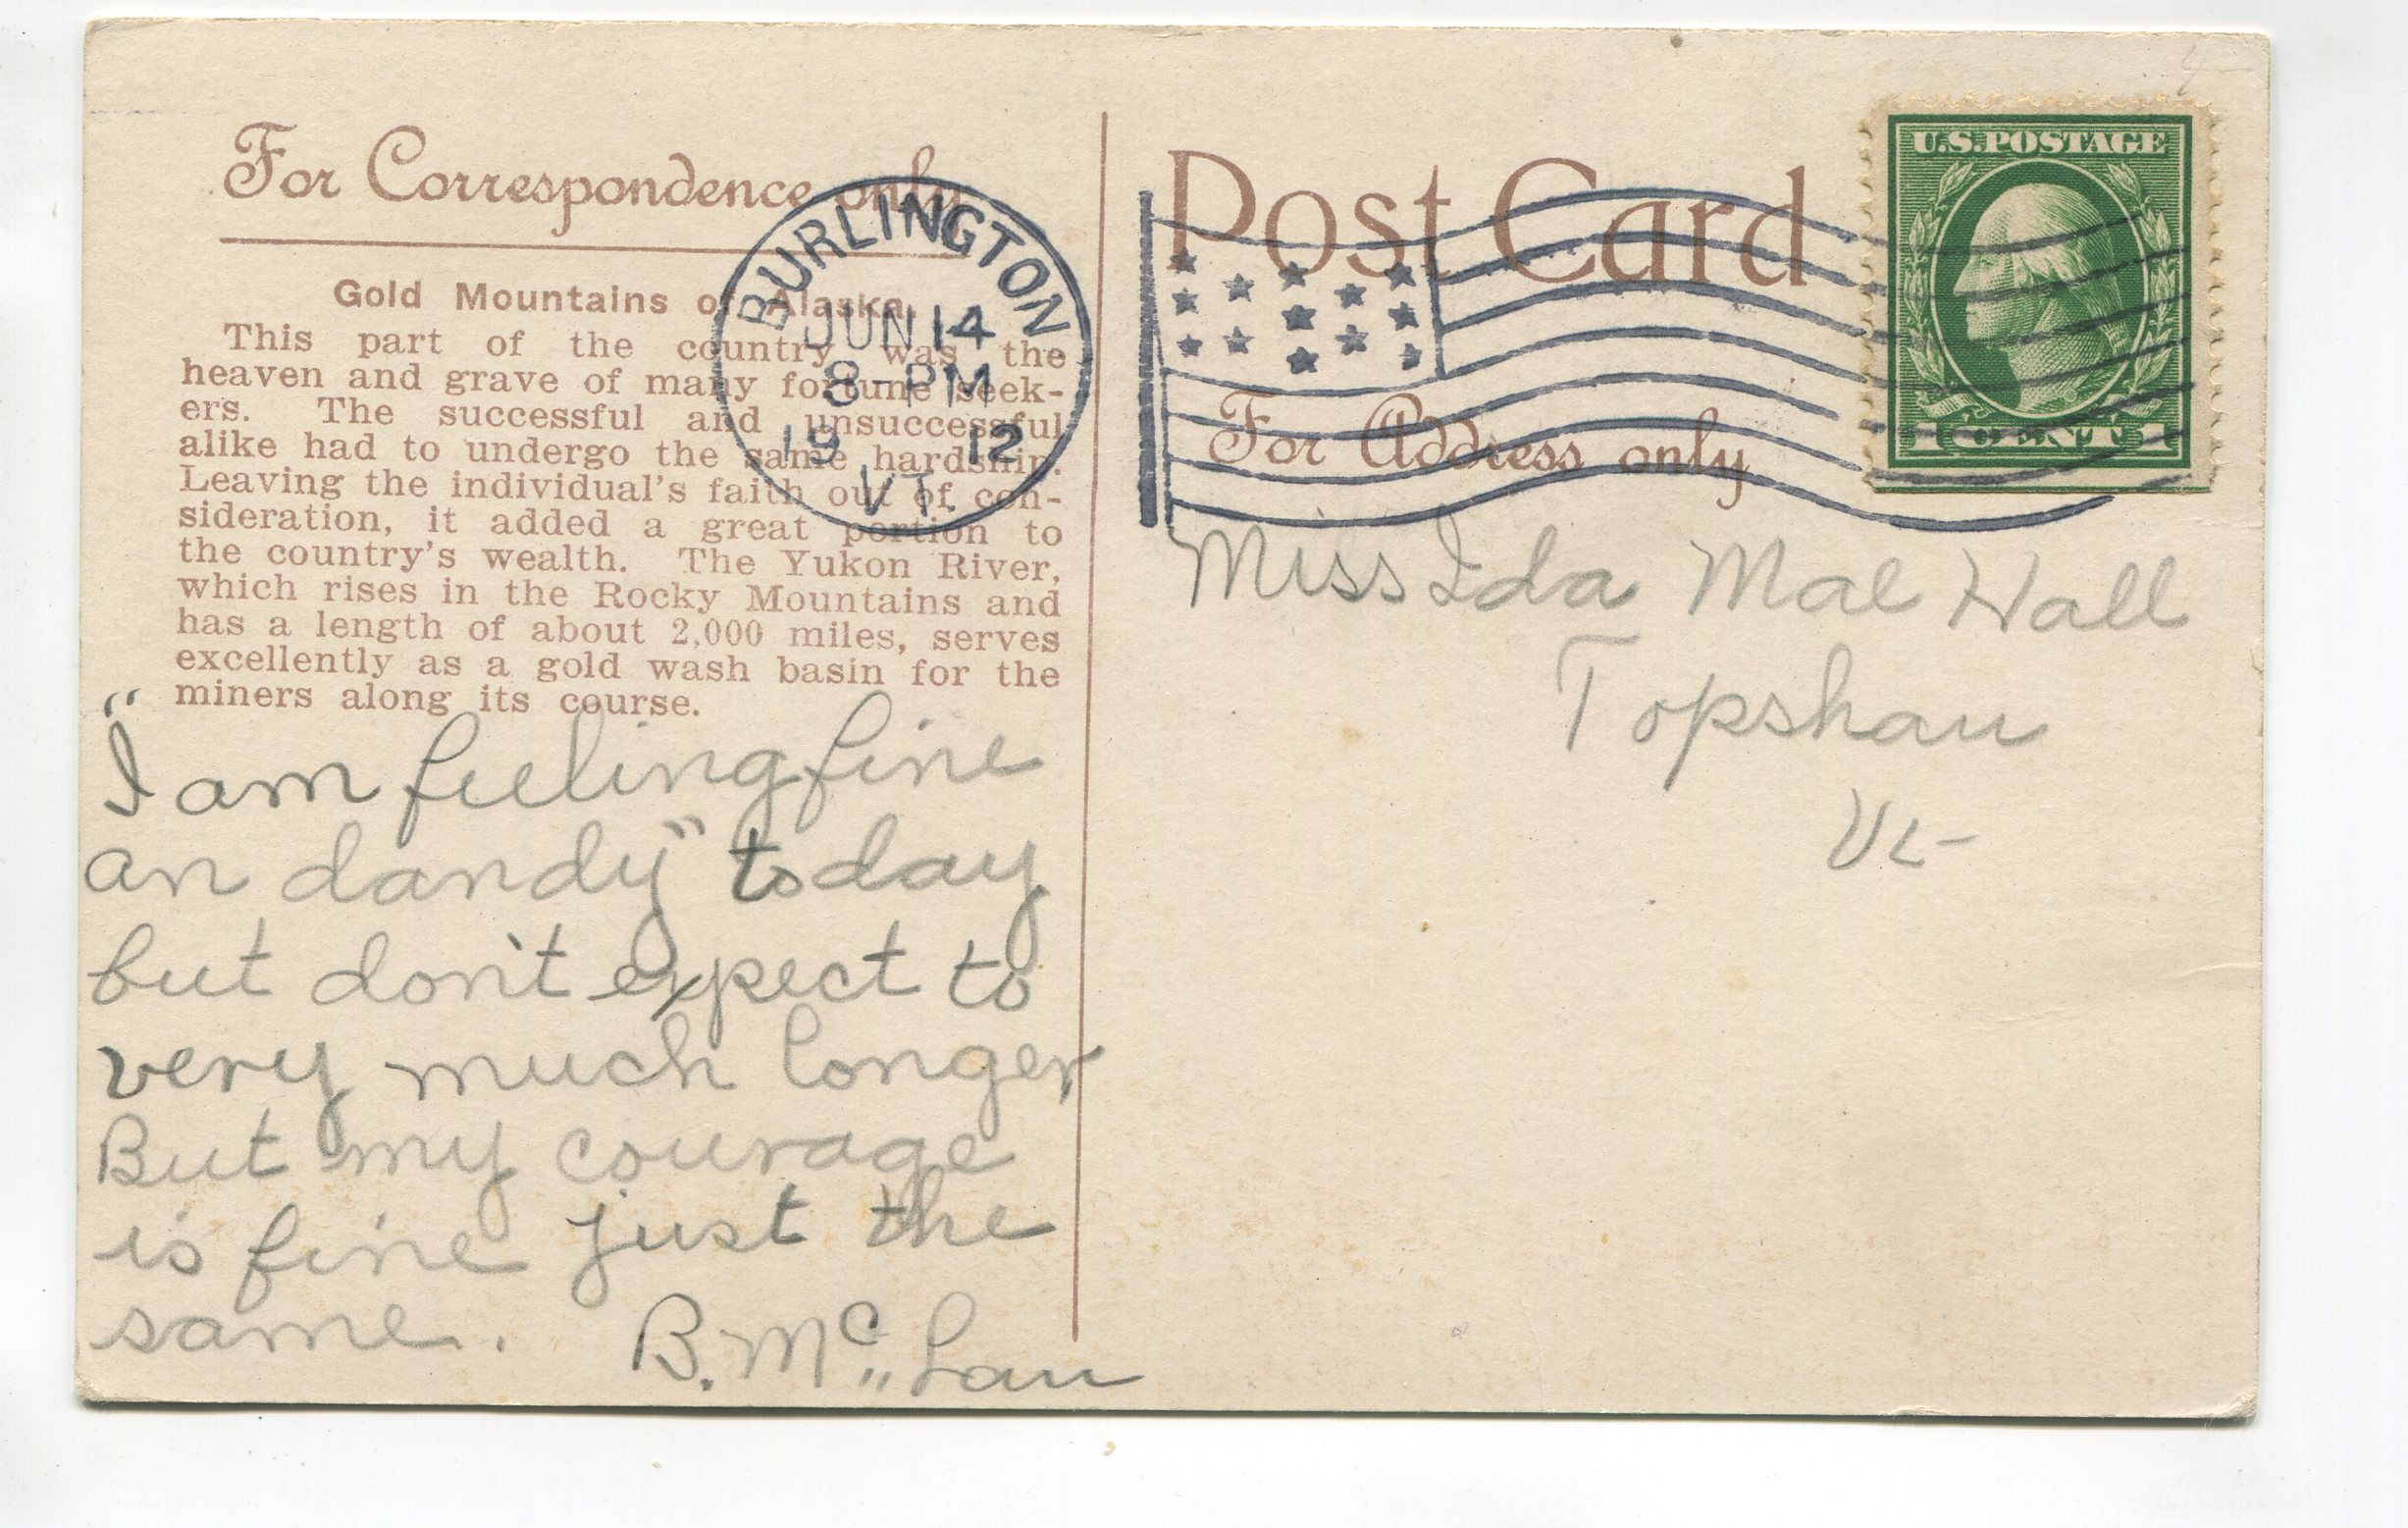 For Correspondence only
Gold Mountains of Alaska.
This part of the country was the
heaven and grave of many fortune seek-
ers. The successful and unsuccessful
alike had to undergo the same hardship.
Leaving the individual's faith out of con-
sideration, it added a great portion to
the country's wealth. The Yukon River,
which rises in the Rocky Mountains and
has a length of about 2,000 miles, serves
excellently as a gold wash basin for the
miners along its course.
"I am feeling fine
an dandy" today
but don't expect to
very much longer
But my courage
is fine just the
same.
B. Mc Lam
BURLINGTON
JUN 14
8-PM
19 12
VT.
Post Card
For Address only
U.S. POSTAGE
1 CENT 1
Miss Ida Mae Hall
Topsham
Vt-